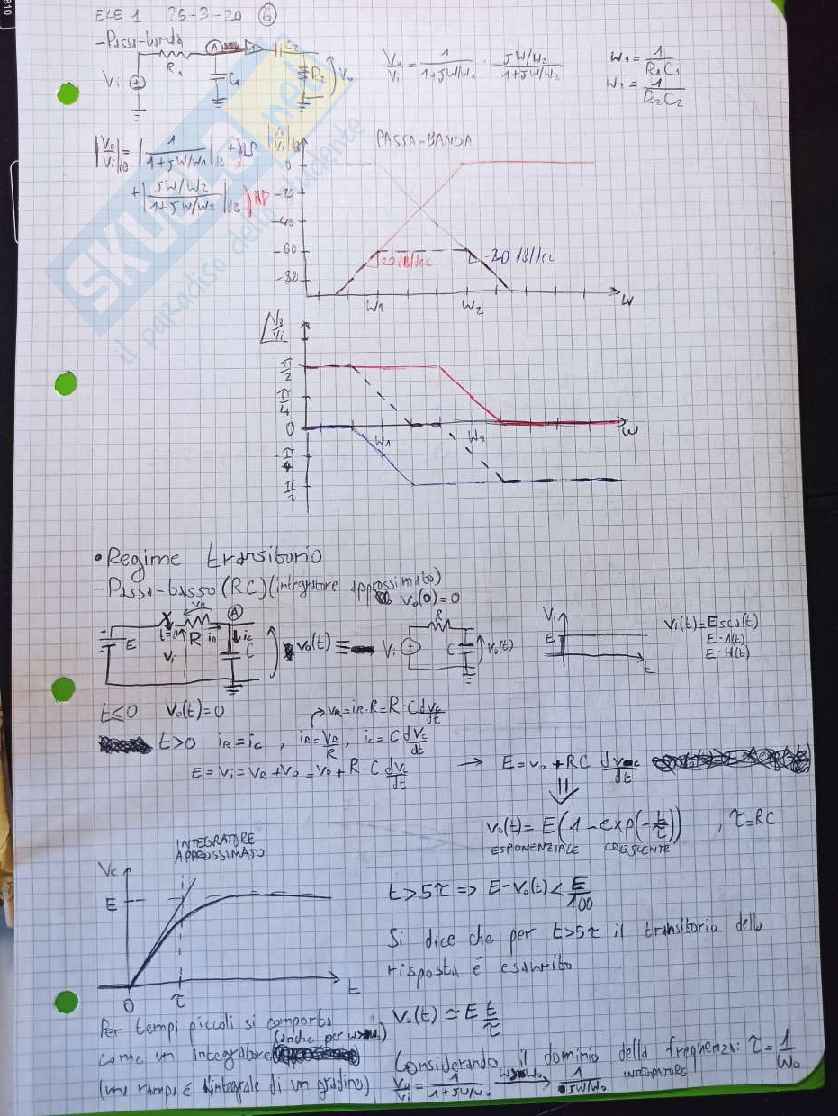 ELE 1 25-3-20 6
- Passa-banda
R1 C1 C2 R2 Vi Vo
Vu/Vi = 1/(1+jω/ω1) · jω/ω2/(1+jω/ω2)
ω1 = 1/(R1C1)
ω2 = 1/(R2C2)
PASSA-BANDA
0
-20
-40
-60
-80
20 dB/dec
-20 dB/dec
ω1 ω2 ω
π/2
π/4
0
-π/4
ω1 ω2 ω
SKUOLA.net
il paradiso dello studente
• Regime transitorio
Passa-basso (RC) (integratore approssimato)
vo(0)=0
E t=0 Vi R iR A iC C vo(t) ≡ Vi R C vo(t)
Vi E t
Vi(t)=E sca(t)
E·1(t)
E·u(t)
t≤0 vo(t)=0
vR=iR·R=RC dvc/dt
t>0 iR=iC , iR=vR/R , iC=C dvc/dt
E=vi=vR+vo=vo+R C dvc/dt → E=vo+RC dvc/dt
vo(t)=E(1-exp(-t/τ)) , τ=RC
ESPONENZIALE CRESCENTE
INTEGRATORE
APPROSSIMATO
Vc E 0 τ t
t>5τ => E-vo(t)<E/100
Si dice che per t>5τ il transitorio della
risposta è esaurito
vo(t)≃E t/τ
Per tempi piccoli si comporta
come un integratore
(una rampa è l'integrale di un gradino)
Considerando il dominio della frequenza: τ=1/ω0
Vu/Vi = 1/(1+jω/ω0) → 1/(jω/ω0)
INTEGRATORE